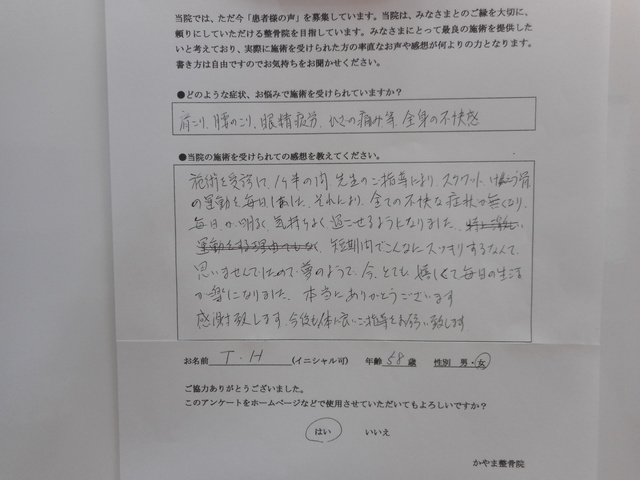 当院では、ただ今「患者様の声」を募集しています。当院は、みなさまとのご縁を大切に、
頼りにしていただける整骨院を目指しています。みなさまにとって最良の施術を提供した
いと考えており、実際に施術を受けられた方の率直なお声や感想が何よりの力となります。
書き方は自由ですのでお気持ちをお聞かせください。
●どのような症状、お悩みで施術を受けられていますか？
肩こり、腰のこり、眼精疲労、ひざの痛み等、全身の不快感
●当院の施術を受けられての感想を教えてください。
施術を受診して、1ヶ半の間、先生のご指導により、スクワット、けんこう骨
の運動を毎日しました。それにより、全ての不快な症状が無くなり、
毎日が明るく気持ちよく過ごせるようになりました。
運動をする 短期間でこんなにスッキリするなんて、
思いませんでしたので、夢のようで、今、とても嬉しくて毎日の生活
が楽になりました。本当にありがとうございます
感謝致します。今後も体に良いご指導をお願い致します
お名前 T.H (イニシャル可) 年齢 58 歳 性別 男・女
ご協力ありがとうございました。
このアンケートをホームページなどで使用させていただいてもよろしいですか？
はい いいえ
かやま整骨院